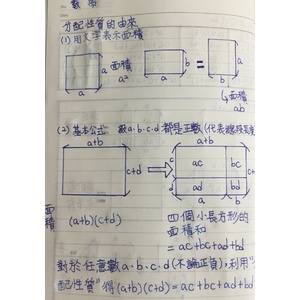 分配性質的由來
(1) 用文字表示面積
a a 面積 a² b a = b a
↳面積 ab
(2) 基本公式 設a、b、c、d都是正數(代表線段長度
a+b a+b
c+d ac bc c c+d
ad bd d
a b
面積 (a+b)(c+d)
四個小長方形的
面積和
=ac+bc+ad+bd
對於任意數a、b、c、d(不論正負),利用"
配性質"得(a+b)(c+d)=ac+bc+ad+bd